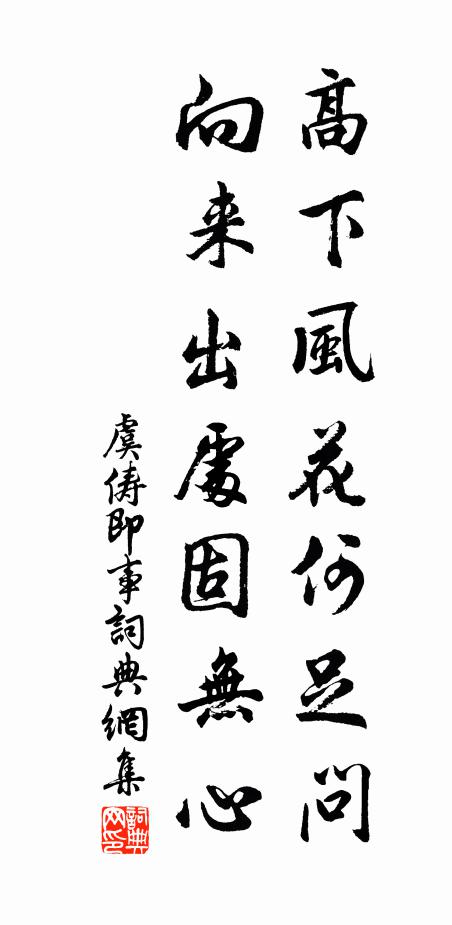 高下風花何足問
向来出處固無心
虞儔即事詞典網集
詞典
网印